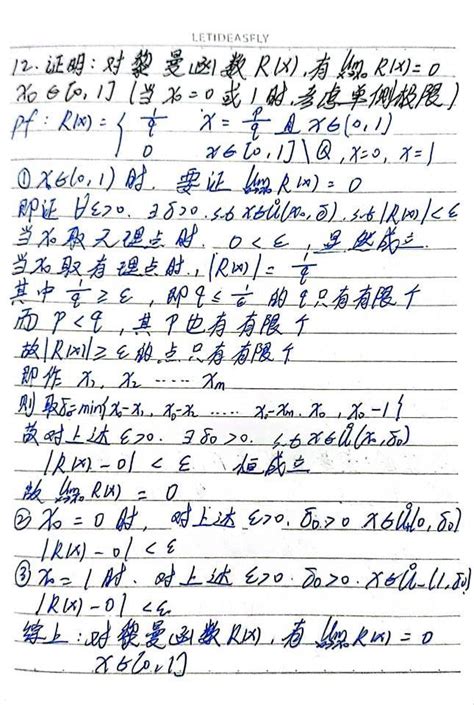 LETIDEASFLY
12. 证明: 对黎曼函数R(x), 有 lim R(x)=0
x₀∈[0,1] (当x₀=0或1时, 考虑单侧极限)
pf: R(x)= { 1/q x=p/q 且 x∈(0,1)
0 x∈[0,1]\Q, x=0, x=1
① x∈(0,1) 时. 要证 lim R(x)=0
即证 ∀ε>0. ∃δ>0. s.t x∈Ů(x₀,δ). s.t |R(x)|<ε
当x₀取无理点时. 0<ε, 显然成立.
当x₀取有理点时, |R(x)|=1/q
其中 1/q≥ε, 即q≤1/ε 的q只有有限个
而 p<q, 其p也有有限个
故|R(x)|≥ε的点只有有限个
即作 x₁, x₂ ····· xₘ
则取δ=min{x₀-x₁, x₀-x₂ ····· x₀-xₘ. x₀, x₀-1}
故对上述 ε>0. ∃δ₀>0. s.t x∈Ů(x₀,δ₀)
|R(x)-0|<ε 恒成立
故 lim R(x)=0
② x₀=0时, 对上述 ε>0. δ₀>0 x∈Ů₊(0,δ₀)
|R(x)-0|<ε
③ x₀=1时. 对上述 ε>0. δ₀>0. x∈Ů₋(1,δ₀)
|R(x)-0|<ε.
综上: 对黎曼函数R(x), 有 lim R(x)=0
x∈[0,1]